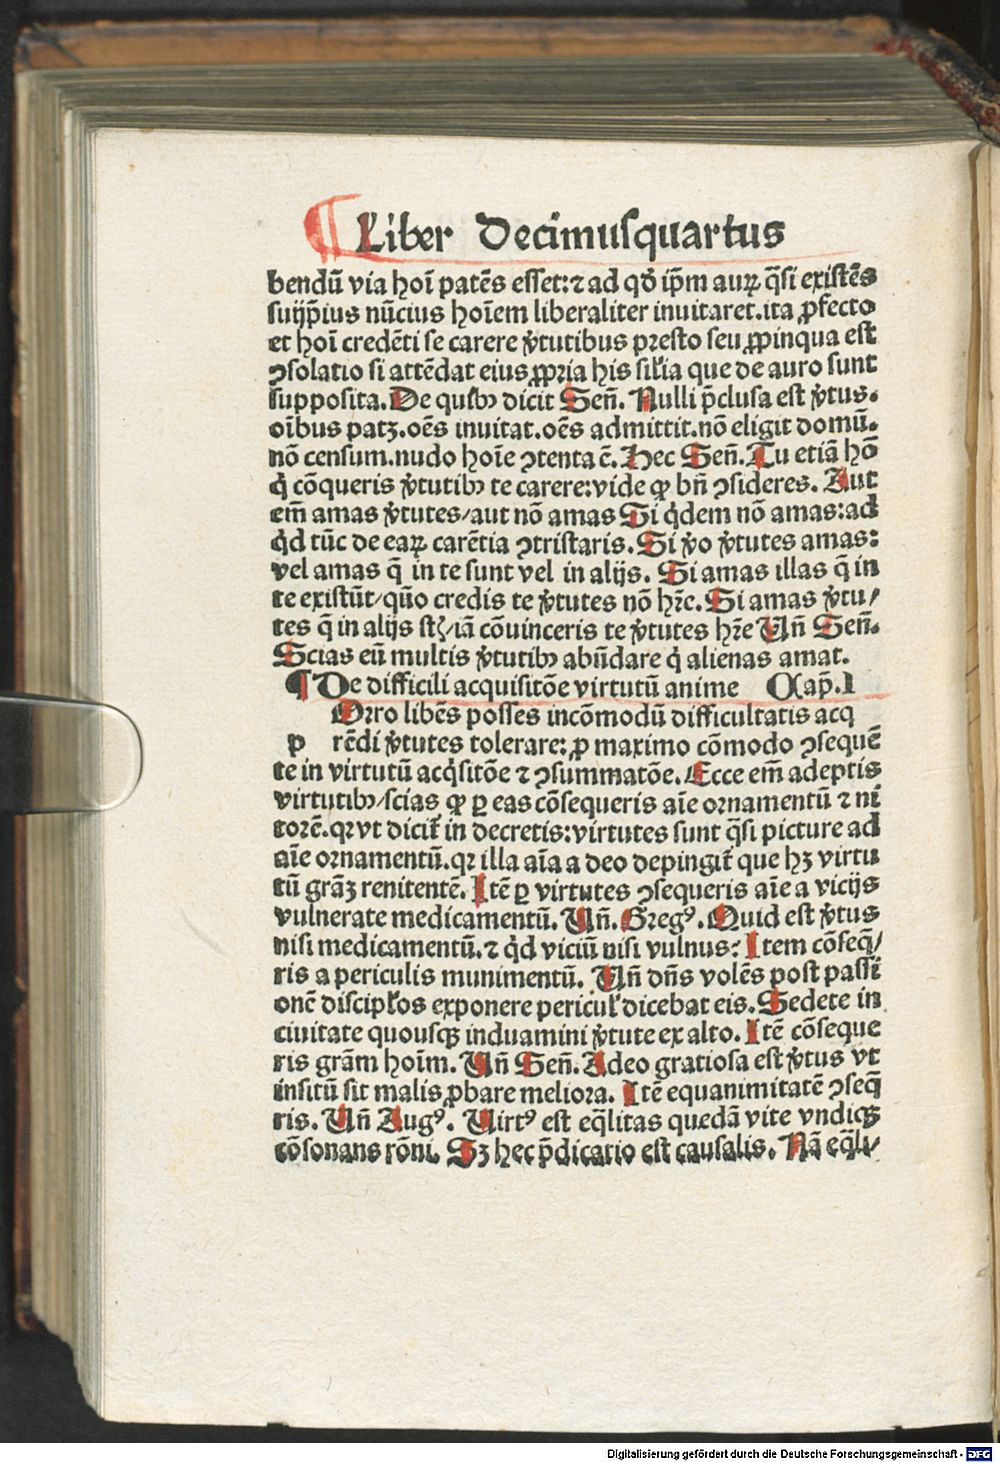 ¶ Liber Decimusquartus
bendū via hoī patēs esset:⁊ ad qđ ip̄m auꝝ q̄si existēs
suijp̄ius nūcius hoīem liberaliter inuitaret.ita ꝓfecto
et hoī credēti se carere v̄tutibus presto seu ꝓpinqua est
ꝯsolatio si attēdat eius ꝓpria his sil̄ia que de auro sunt
supposita. De quibꝰ dicit Señ. Nulli p̄clusa est v̄tus.
oībus patꝫ.oēs inuitat.oēs admittit.nō eligit domū.
nō censum.nudo hoīe ꝯtenta ē. Hec Señ. Tu etiā hō
q̇ cōqueris v̄tutibꝰ te carere:vide ꝙ bn̄ ꝯsideres. Aut
em̄ amas v̄tutes/aut nō amas Si q̇dem nō amas:ad
q̇d tūc de eaꝝ carētia ꝯtristaris. Si v̄o v̄tutes amas:
vel amas q̄ in te sunt vel in alijs. Si amas illas q̄ in
te existūt/quō credis te v̄tutes nō hr̄e. Si amas v̄tu/
tes q̄ in alijs st̄/iā cōuinceris te v̄tutes hr̄e Un̄ Señ.
Scias eū multis v̄tutibꝰ abūdare q̇ alienas amat.
¶ De difficili acquisitōe virtutū anime Cap̄.I
Orro libēs posses incōmodū difficultatis acq
p rēdi v̄tutes tolerare: ꝓ maximo cōmodo ꝯsequē
te in virtutū acq̇sitōe ⁊ ꝯsummatōe. Ecce em̄ adeptis
virtutibꝰ/scias ꝙ ꝑ eas cōsequeris aīe ornamentū ⁊ ni
torē.qꝛ vt dicit̄ in decretis:virtutes sunt q̄si picture ad
aīe ornamentū.qꝛ illa aīa a deo depingit̄ que hꝫ virtu
tū grāꝫ renitentē. Itē ꝑ virtutes ꝯsequeris aīe a vicijs
vulnerate medicamentū. Un̄. Gregꝰ. Quid est v̄tus
nisi medicamentū.⁊ q̇d viciū nisi vulnus: Item cōseq̄/
ris a periculis munimentū. Un̄ dn̄s volēs post passi
onē discipl̄os exponere pericul̄ dicebat eis. Sedete in
ciuitate quousqꝫ induamini v̄tute ex alto. Itē cōseque
ris grām hoīm. Un̄ Señ. Adeo gratiosa est v̄tus vt
insitū sit malis ꝓbare meliora. Itē equanimitatē ꝯseq̄
ris. Un̄ Augꝰ. Uirtꝰ est eq̄litas quedā vite vndiqꝫ
cōsonans rōni. Sꝫ hec p̄dicatio est causalis. Nā eq̄li/
Digitalisierung gefördert durch die Deutsche Forschungsgemeinschaft - DFG